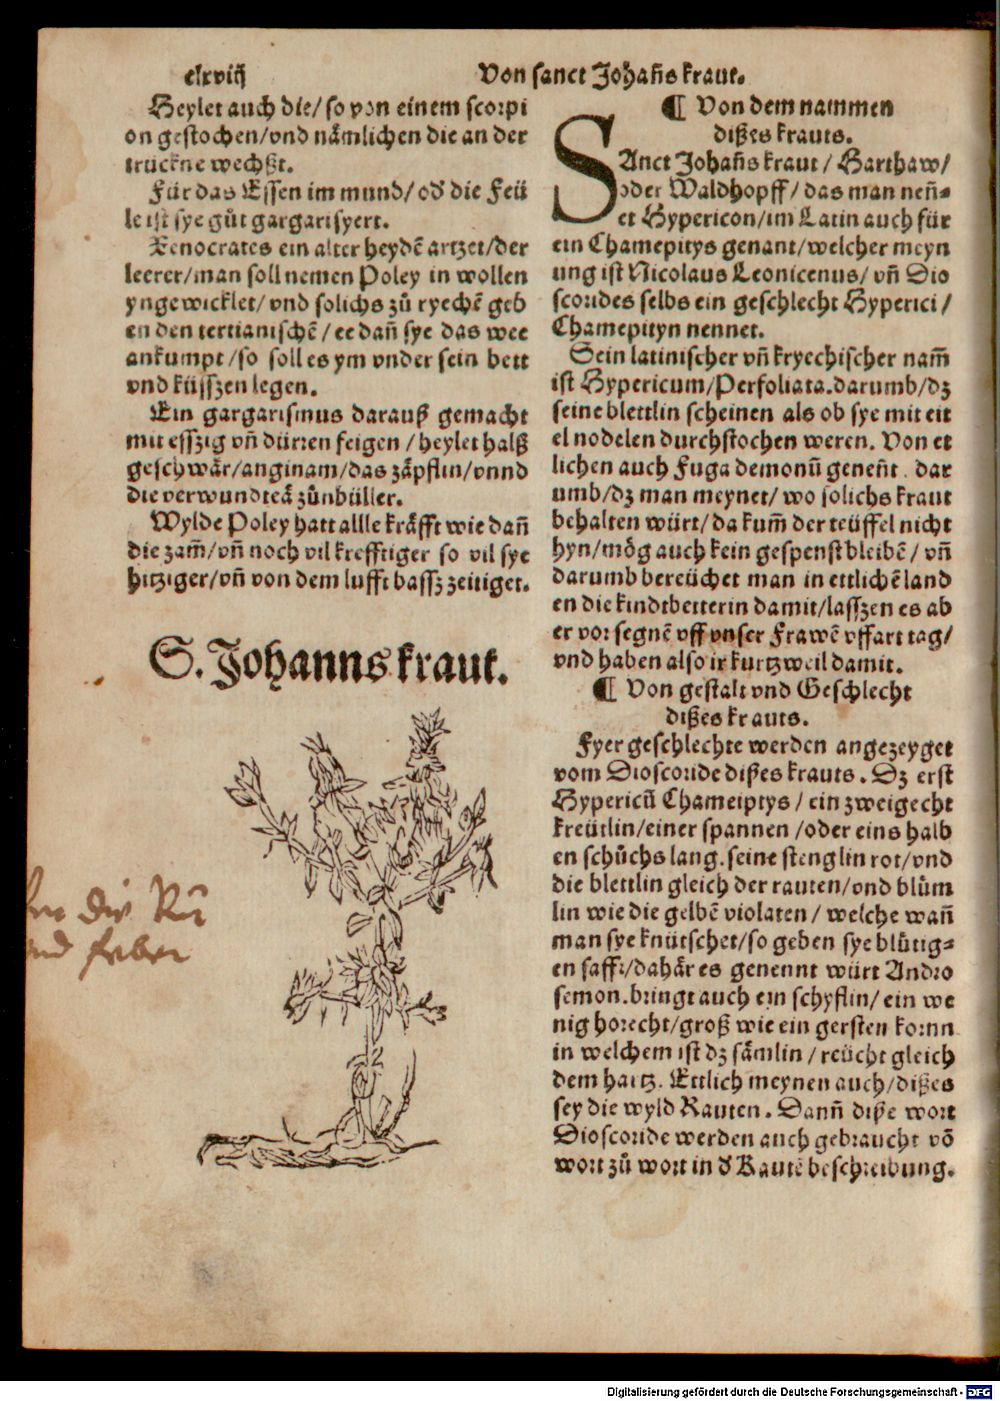 clxviij
Von sanct Johañs kraut.
Heylet auch die/ so von einem scorpi
on gestochen/vnd nämlichen die an der
truckne wechßt.
Für das Essen im mund/ od̄ die Feü
le ist sye gůt gargarisyert.
Xenocrates ein alter heydē artzet/der
leerer/man soll nemen Poley in wollen
yngewicklet/ vnd solichs zů ryechē geb
en den tertianischē / ee dañ sye das wee
ankumpt /so soll es ym vnder sein bett
vnd küsszen legen.
Ein gargarismus darauß gemacht
mit esszig vñ dürren feigen / heylet halß
geschwär/anginam/das zäpflin/vnnd
die verwundteä zůnbüller.
Wylde Poley hatt allle kräfft wie dañ
die zam̃/vñ noch vil krefftiger so vil sye
hitziger/vñ von dem lufft bassz zeitiget.
S. Johanns kraut.
die
vnd feber
¶ Von dem nammen
dißes krauts.
SAnct Johañs kraut / Harthaw/
oder Waldhopff/ das man neñ=
et Hypericon/im Latin auch für
ein Chamepitys genant/welcher meyn
ung ist Nicolaus Leonicenus/ vñ Dio
scorides selbs ein geschlecht Hyperici /
Chamepityn nennet.
Sein latinischer vñ kryechischer nam̃
ist Hypericum/Perfoliata.darumb/dz
seine blettlin scheinen als ob sye mit eit
el nodelen durchstochen weren. Von et
lichen auch Fuga demonū geneñt. dar
umb/dz man meynet/ wo solichs kraut
behalten würt/ da kum̃ der teüffel nicht
hyn/mög auch kein gespenst bleibē / vñ
darumb bereüchet man in ettlichē land
en die kindtbetterin damit/lasszen es ab
er vor segnē vff vnser Frawē vffart tag/
vnd haben also ir kurtzweil damit.
¶ Von gestalt vnd Geschlecht
dißes krauts.
Fyer geschlechte werden angezeyget
vom Dioscoride dißes krauts. Dz erst
Hypericū Chameiptys / ein zweigecht
kreütlin/einer spannen /oder eins halb
en schůchs lang. seine stenglin rot/vnd
die blettlin gleich der rauten/vnd blům
lin wie die gelbē violaten / welche wañ
man sye knütschet/so geben sye blůtig=
en safft/dahär es genennt würt Andro
semon.bringt auch ein schyflin/ ein we
nig horecht/groß wie ein gersten kornn
in welchem ist dz sämlin / reücht gleich
dem hartz. Ettlich meynen auch/dißes
sey die wyld Rauten. Dann̄ diße wort
Dioscoride werden auch gebraucht vō
wort zů wort in d̄ Rautē beschreibung.
Digitalisierung gefördert durch die Deutsche Forschungsgemeinschaft - DFG